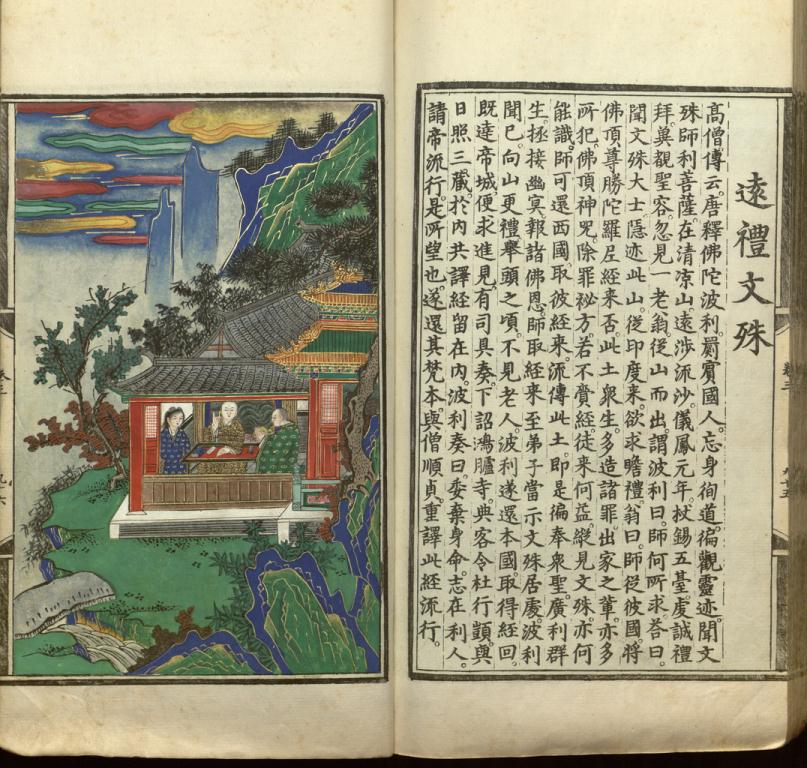 遠禮文殊
高僧傳云。唐釋佛陀波利。罽賓國人。忘身徇道。徧觀靈迹。聞文
殊師利菩薩。在清凉山。遠涉流沙。儀鳳元年。杖錫五臺。虔誠禮
拜。冀覩聖容。忽見一老翁。從山而出。謂波利曰。師何所求。荅曰。
聞文殊大士。隱迹此山。從印度来。欲求瞻禮。翁曰。師從彼國。將
佛頂尊勝陀羅尼經来否。此土衆生。多造諸罪。出家之輩。亦多
所犯。佛頂神咒。除罪祕方。若不賫經。徒来何益。縱見文殊。亦何
能識。師可還西國。取彼經来。流傳此土。即是徧奉衆聖。廣利群
生。拯接幽冥。報諸佛恩。師取經来至。弟子當示文殊居處。波利
聞已。向山更禮。舉頭之頃。不見老人。波利遂還本國。取得經回。
既達帝城。便求進見。有司具奏。下詔鴻臚寺典客令杜行顗與
日照三藏。於内共譯。經留在内。波利奏曰。委棄身命。志在利人。
請帝流行。是所望也。遂還其梵本。與僧順貞。重譯此經流行。